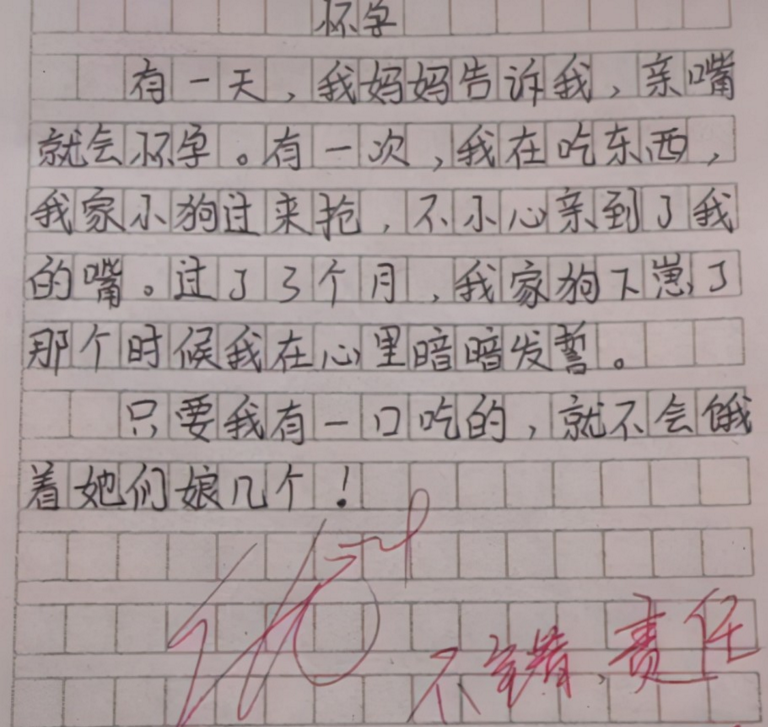 怀孕
有一天，我妈妈告诉我，亲嘴
就会怀孕。有一次，我在吃东西，
我家小狗过来抢，不小心亲到了我
的嘴。过了3个月，我家狗下崽了
那个时候我在心里暗暗发誓。
只要我有一口吃的，就不会饿
着她们娘几个！
不宝贵、责任